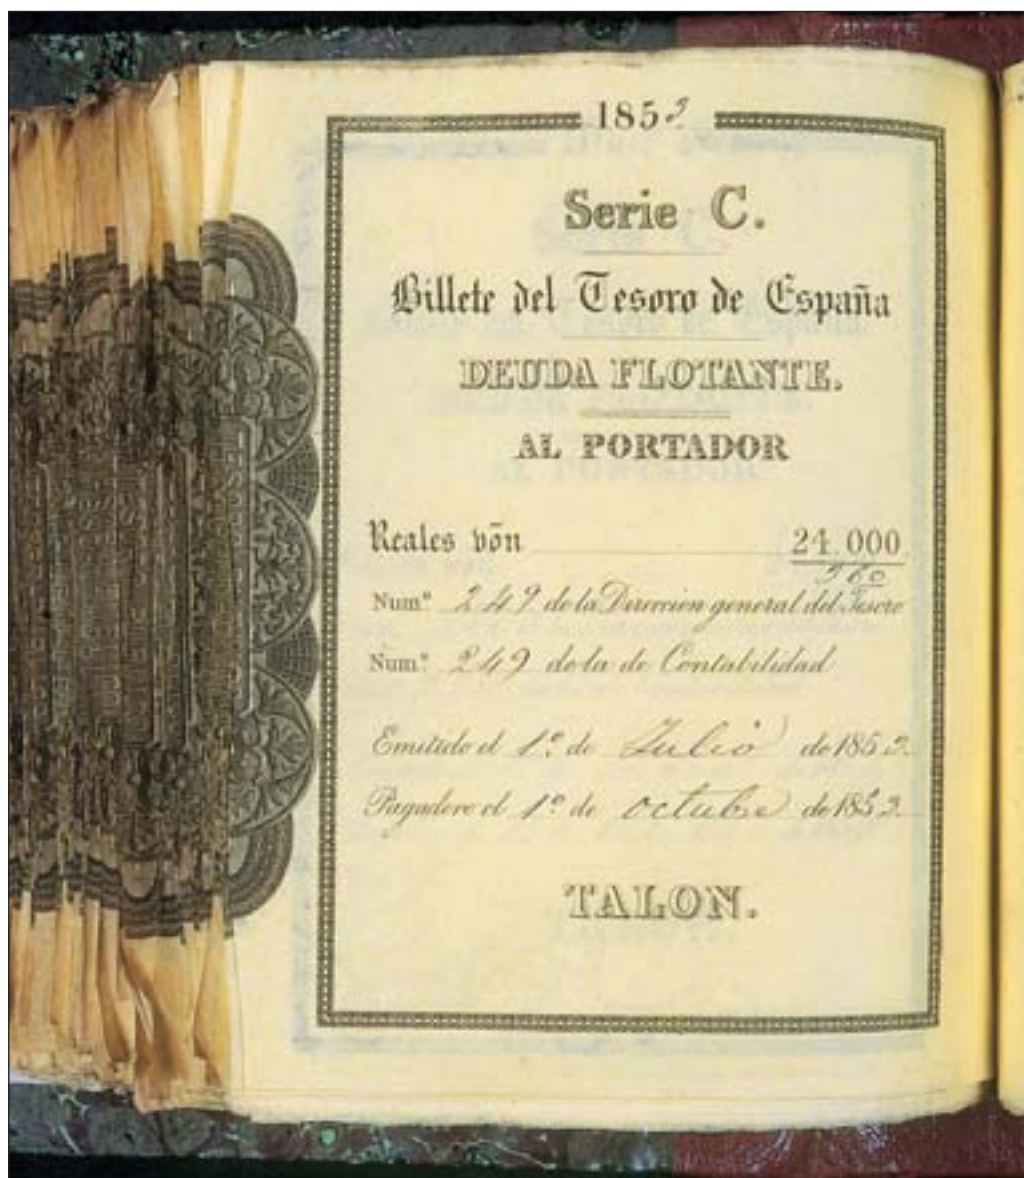 1853
Serie C.
Billete del Tesoro de España
DEUDA FLOTANTE.
AL PORTADOR
Reales vōn 24.000
360
Num.º 249 de la Direccion general del Tesoro
Num.º 249 de la de Contabilidad
Emitido el 1º de Julio de 1853.
Pagadero el 1º de octubre de 1853.
TALON.